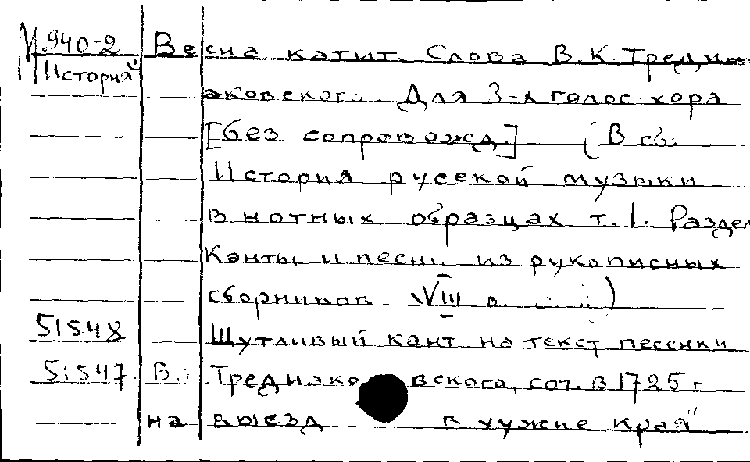 И.940-2 Весна катит. Слова В.К.Тредиа-
"История" аковского. Для 3-х голос хора
[без сопровожд.] (В сб.
История русской музыки
в нотных образцах т.1. Раздел
Канты и песни из рукописных
сборников XVIII в.)
51548 Шутливый кант на текст песенки
51547 В. Тредиаковского, соч. в 1725 г
на выезд в чужие края"